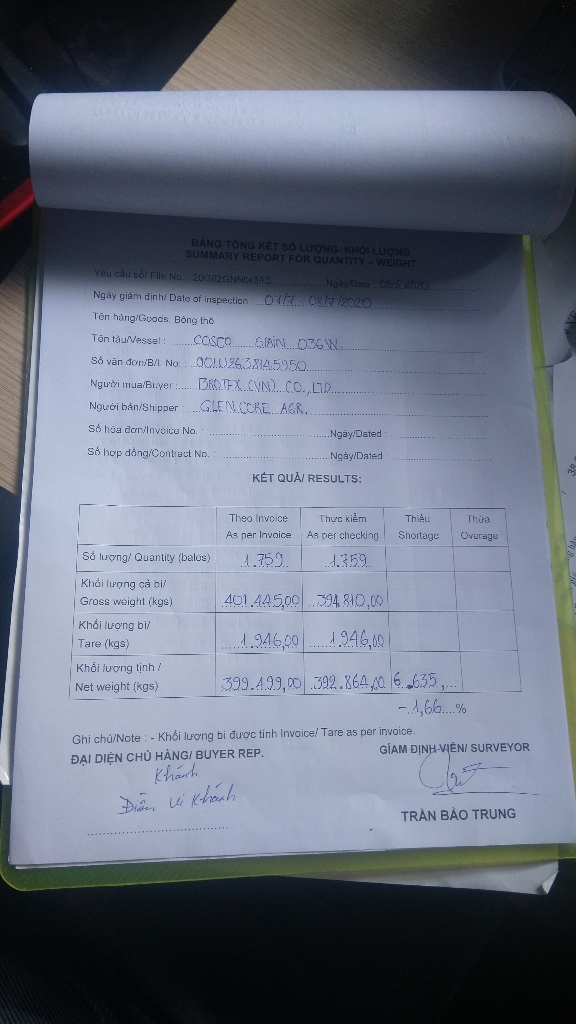 BẢNG TỔNG KẾT SỐ LƯỢNG- KHỐI LƯỢNG
SUMMARY REPORT FOR QUANTITY – WEIGHT
Yêu cầu số/ File No. : 20G02GNN01345 Ngày/Date :
Ngày giám định/ Date of inspection : 01/7 - 08/7/2020
Tên hàng/Goods: Bông thô
Tên tàu/Vessel : COSCO SPAIN 036W
Số vận đơn/B/L No. :
Người mua/Buyer : BROTEX (VN) CO., LTD
Người bán/Shipper : GLENCORE AGR.
Số hóa đơn/Invoice No. : Ngày/Dated :
Số hợp đồng/Contract No. : Ngày/Dated :
KẾT QUẢ/ RESULTS:
Theo Invoice Thực kiểm Thiếu Thừa
As per Invoice As per checking Shortage Overage
Số lượng/ Quantity (bales) 1.759 1.759
Khối lượng cả bì/
Gross weight (kgs) 401.445,00 394.810,00
Khối lượng bì/
Tare (kgs) 1.946,00 1.946,00
Khối lượng tịnh /
Net weight (kgs) 399.499,00 392.864,00 6.635,
- 1,66 %
Ghi chú/Note : - Khối lượng bì được tính Invoice/ Tare as per invoice
ĐẠI DIỆN CHỦ HÀNG/ BUYER REP. GIÁM ĐỊNH VIÊN/ SURVEYOR
Khánh
Vi Khánh
TRẦN BẢO TRUNG